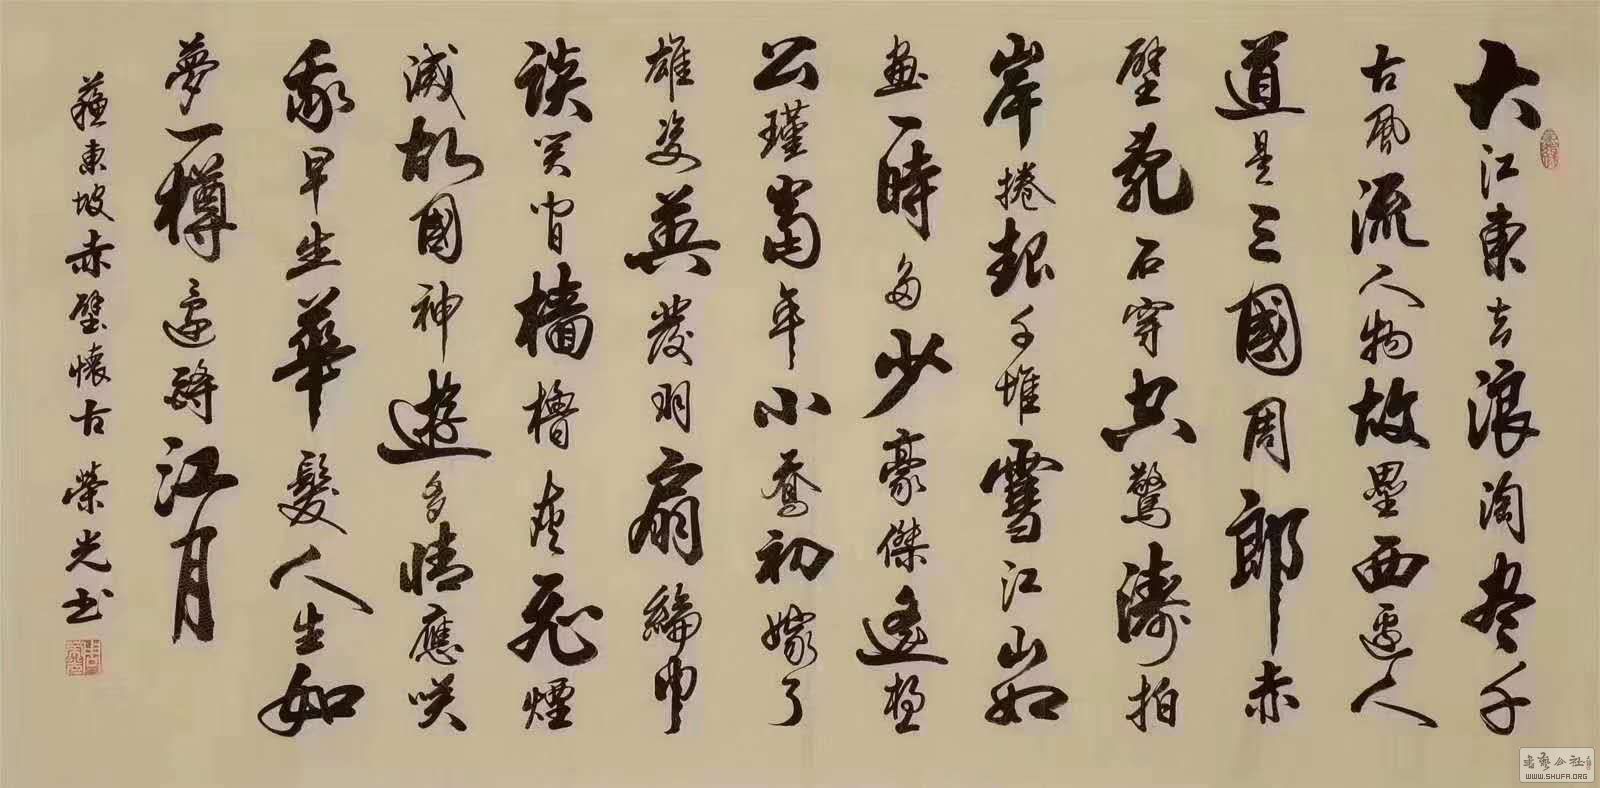 大江東去浪淘尽千
古風流人物故壘西邊人
道是三國周郎赤
壁亂石穿空驚濤拍
岸捲起千堆雪江山如
畫一時多少豪傑遙想
公瑾當年小喬初嫁了
雄姿英發羽扇綸巾
談笑間檣櫓灰飛煙
滅故國神遊多情應笑
我早生華髮人生如
夢一樽還酹江月
蘇東坡赤壁懷古 榮光書
書藝公社
WWW.SHUFA.ORG